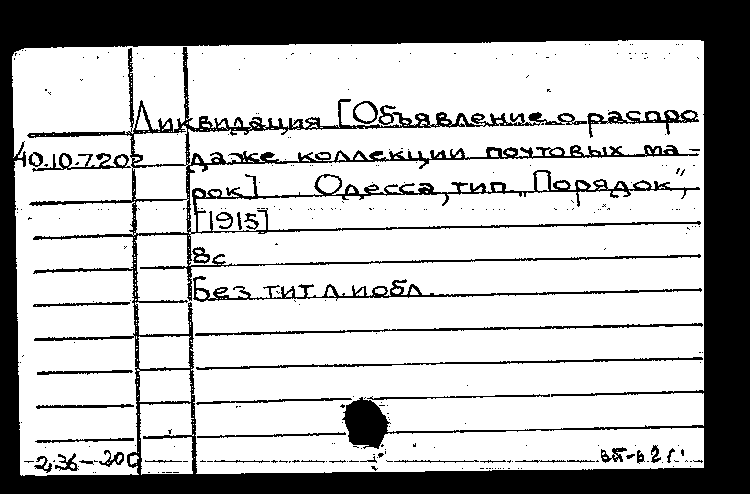 Ликвидация [Объявление о распро
40.10.7.202 даже коллекции почтовых ма-
рок] Одесса, тип. „Порядок",
[1915]
8с
Без тит. л. и обл.
2,36-200